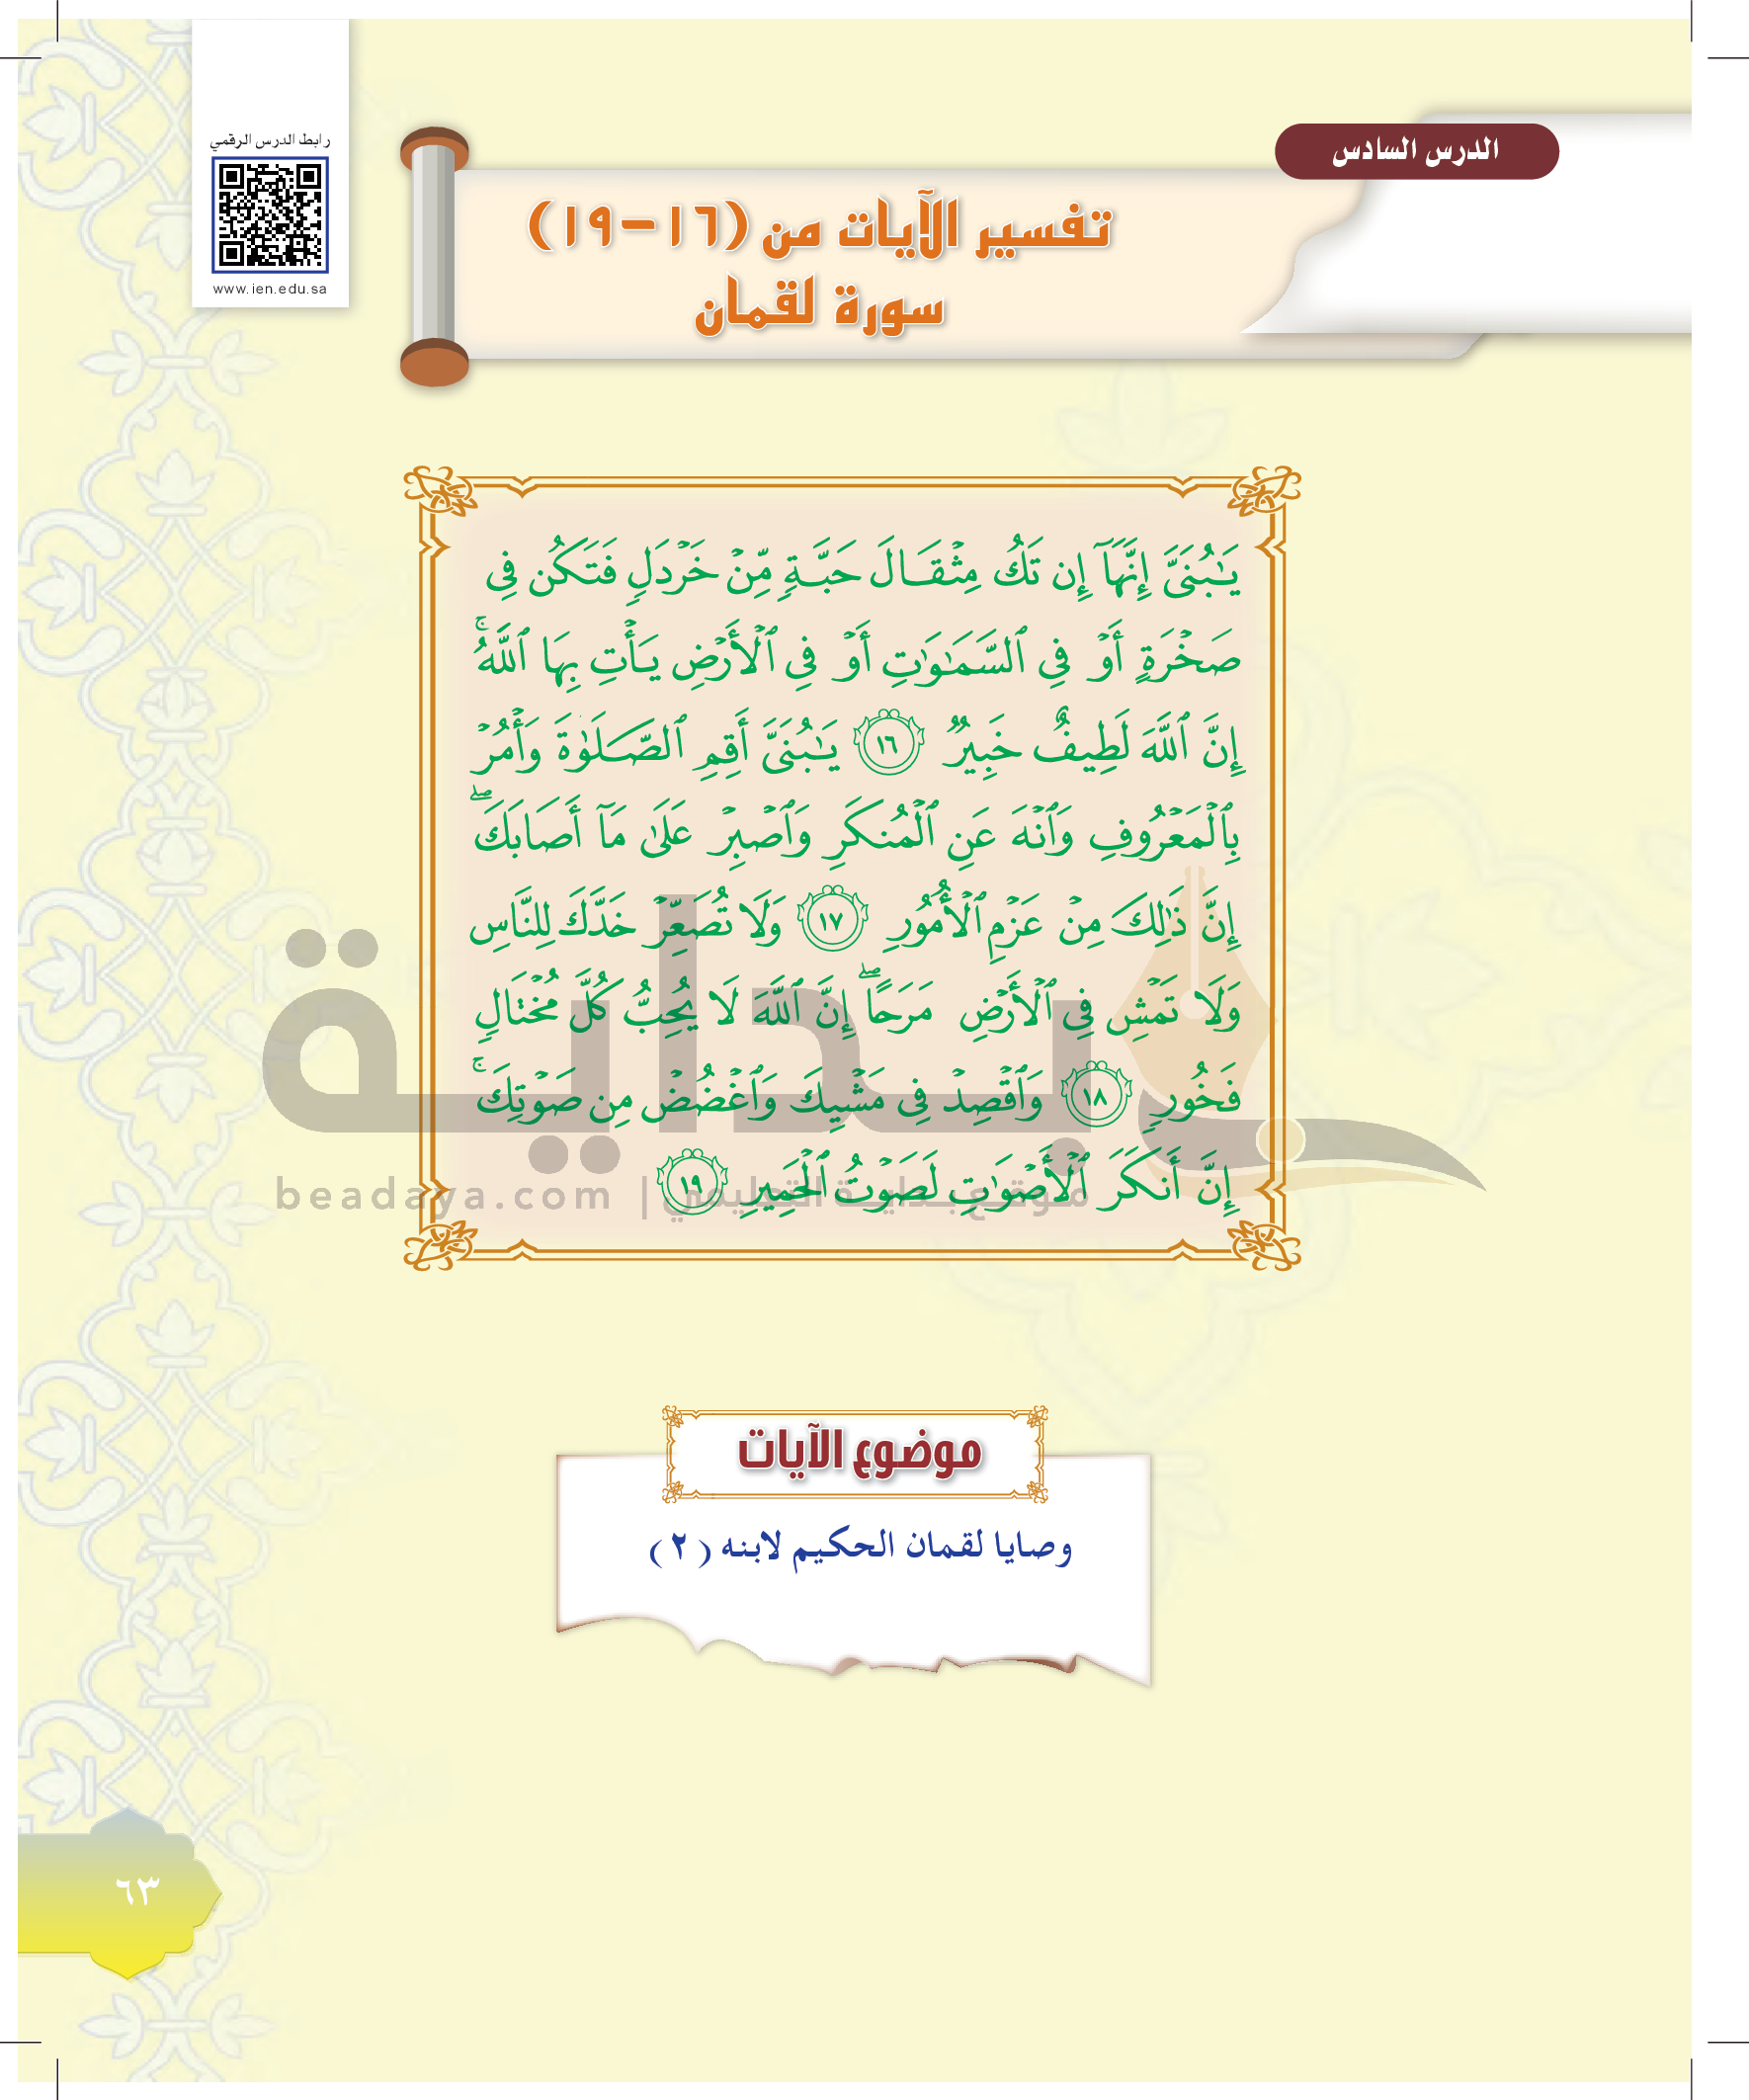 رابط الدرس الرقمي
www.ien.edu.sa
الدرس السادس
تفسير الآيات من (١٦-١٩)
سورة لقمان
يَٰبُنَيَّ إِنَّهَآ إِن تَكُ مِثۡقَالَ حَبَّةٖ مِّنۡ خَرۡدَلٖ فَتَكُن فِي
صَخۡرَةٍ أَوۡ فِي ٱلسَّمَٰوَٰتِ أَوۡ فِي ٱلۡأَرۡضِ يَأۡتِ بِهَا ٱللَّهُۚ
إِنَّ ٱللَّهَ لَطِيفٌ خَبِيرٞ ١٦ يَٰبُنَيَّ أَقِمِ ٱلصَّلَوٰةَ وَأۡمُرۡ
بِٱلۡمَعۡرُوفِ وَٱنۡهَ عَنِ ٱلۡمُنكَرِ وَٱصۡبِرۡ عَلَىٰ مَآ أَصَابَكَۖ
إِنَّ ذَٰلِكَ مِنۡ عَزۡمِ ٱلۡأُمُورِ ١٧ وَلَا تُصَعِّرۡ خَدَّكَ لِلنَّاسِ
وَلَا تَمۡشِ فِي ٱلۡأَرۡضِ مَرَحًاۖ إِنَّ ٱللَّهَ لَا يُحِبُّ كُلَّ مُخۡتَالٖ
فَخُورٖ ١٨ وَٱقۡصِدۡ فِي مَشۡيِكَ وَٱغۡضُضۡ مِن صَوۡتِكَۚ
إِنَّ أَنكَرَ ٱلۡأَصۡوَٰتِ لَصَوۡتُ ٱلۡحَمِيرِ ١٩
بداية
موقع بداية التعليمي | beadaya.com
موضوع الآيات
وصايا لقمان الحكيم لابنه (٢)
٦٣